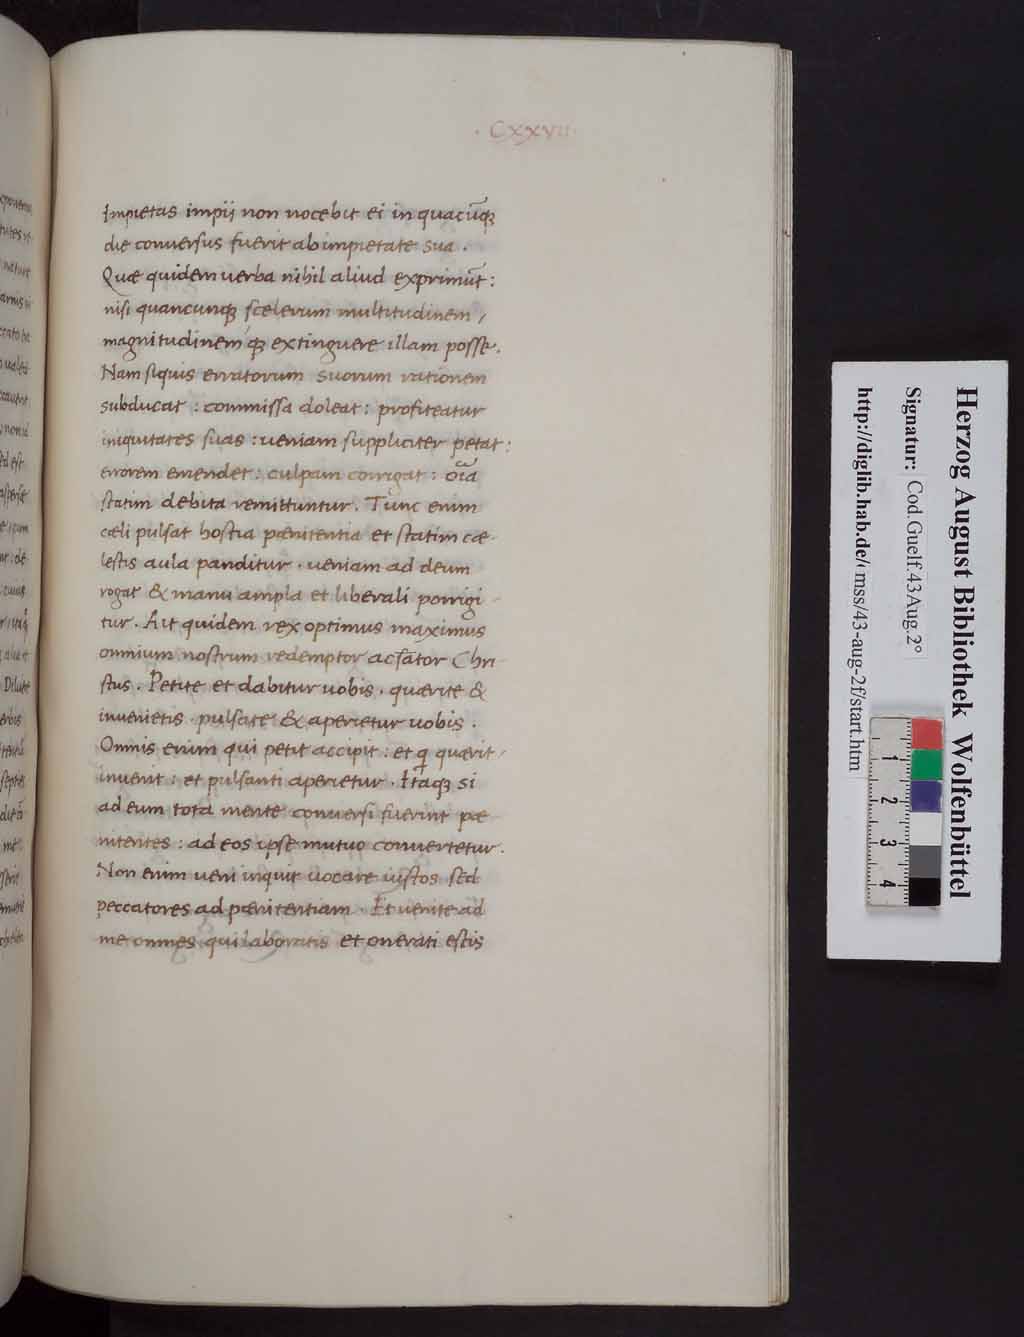 · CXXVII ·
Impietas impij non nocebit ei in quacūqȝ
die conuersus fuerit ab impietate sua .
Quæ quidem uerba nihil aliud exprimūt :
nisi quancunqȝ scelerum multitudinem ,
magnitudinem qȝ extinguere illam posse .
Nam siquis erratorum suorum rationem
subducat : commissa doleat : profiteatur
iniquitates suas : ueniam suppliciter petat :
errorem emendet : culpam corrigat : oīa
statim debita remittuntur . Tunc enim
cæli pulsat hostia pænitentia et statim cæ-
lestis aula panditur . ueniam ad deum
rogat & manu ampla et liberali porrigi -
tur . Ait quidem rex optimus maximus
omnium nostrum redemptor ac sāator Chri-
stus . Petite et dabitur uobis . quærite &
inuenietis . pulsate & aperietur uobis .
Omnis enim qui petit accipit : et q quærit -
inuenit : et pulsanti aperietur . Itaqȝ si
ad eum tota mente conuersi fuerint pæ-
nitentes : ad eos ipse mutuo conuertetur .
Non enim ueni inquit uocare iustos sed
peccatores ad pænitentiam . Et uenite ad
me omnes qui laboratis et onerati estis
Herzog August Bibliothek Wolfenbüttel
Signatur: Cod.Guelf.43 Aug.2°
http://diglib.hab.de/mss/43-aug-2f/start.htm
1 2 3 4